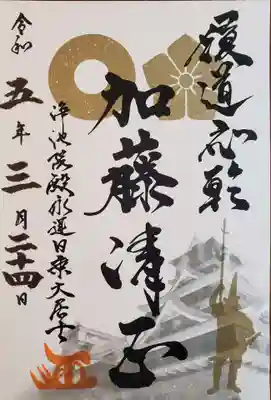 履道応乾
加藤清正
浄池院殿永運日乗大居士
令和五年三月二十四日